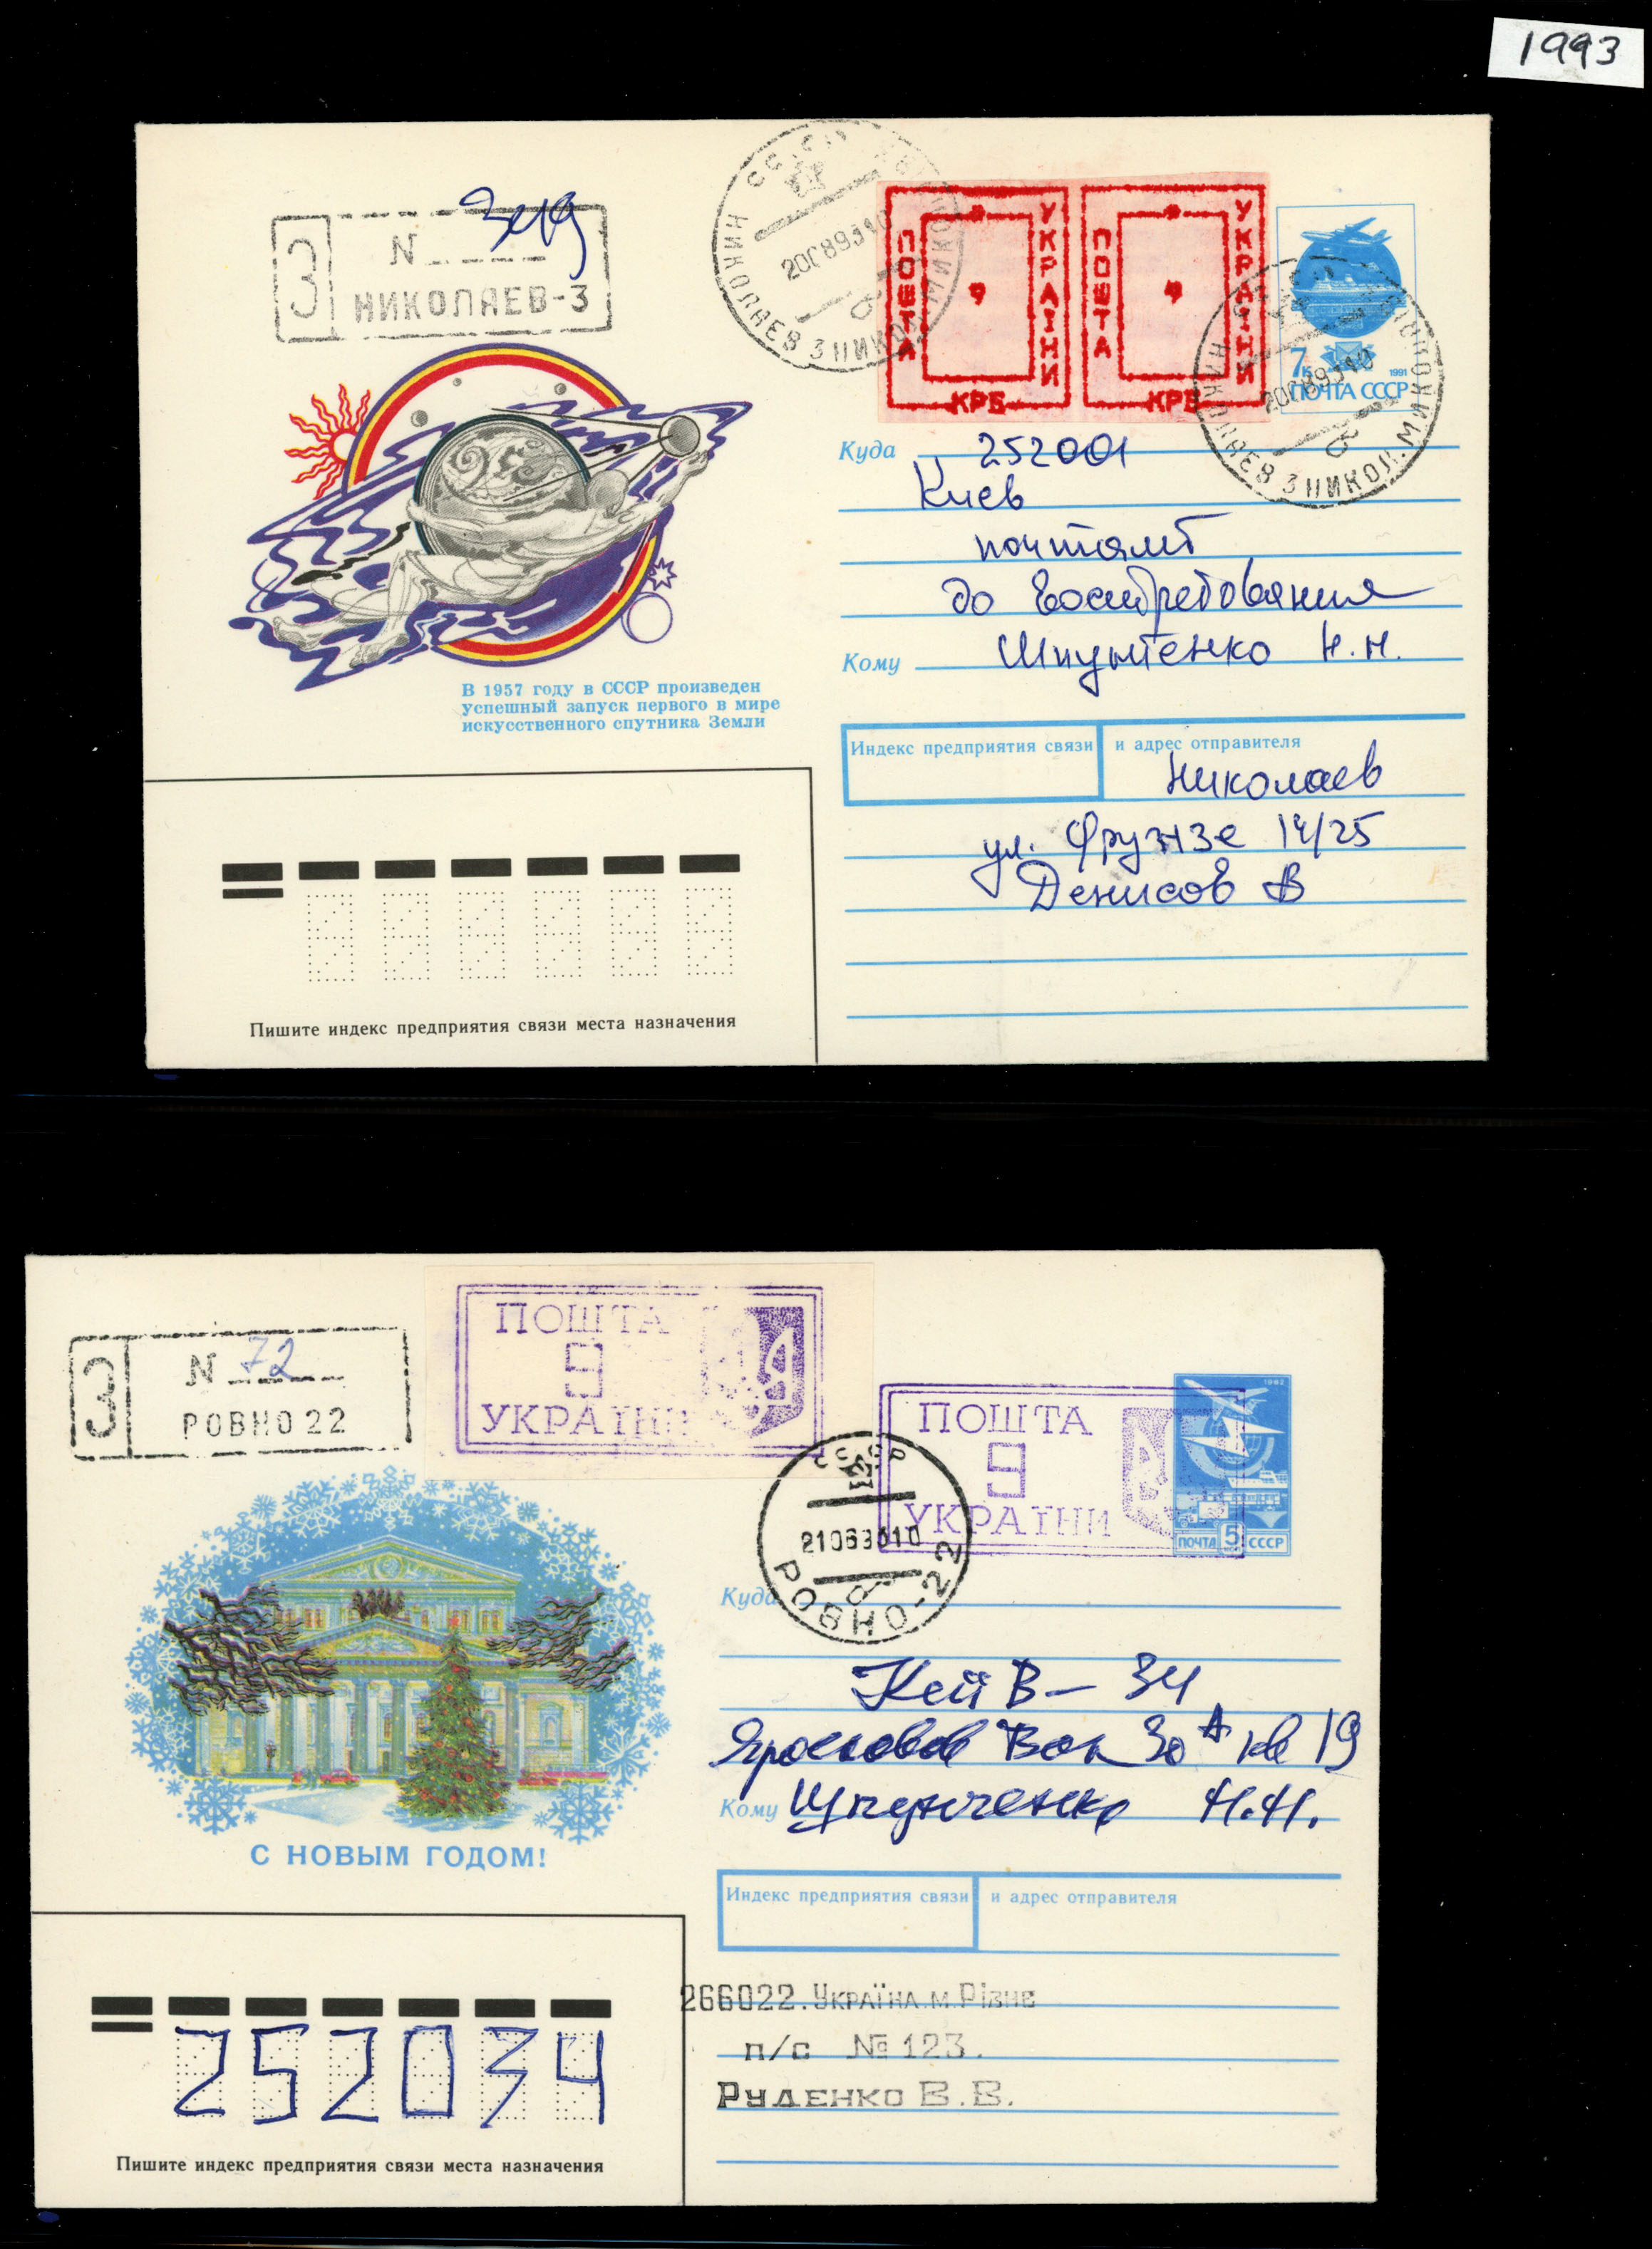 1993
З
N
НИКОЛАЕВ-3
НИКОЛАЕВ 3 НИКОЛ.
200893 10
ПОШТА
9
УКРАІНИ
КРБ
ПОШТА
9
УКРАІНИ
КРБ
7к
1991
ПОЧТА СССР
НИКОЛАЕВ 3 НИКОЛ.
200893 10
Куда 252001
Киев
почтамт
до востребования
Кому Шпунтенко Н.Н.
В 1957 году в СССР произведен
успешный запуск первого в мире
искусственного спутника Земли
Индекс предприятия связи и адрес отправителя
Николаев
ул. Фрунзе 14/25
Денисов В
Пишите индекс предприятия связи места назначения
З
N 72
РОВНО 22
ПОШТА
9
УКРАЇНИ
ПОШТА
9
УКРАЇНИ
1982
ПОЧТА 5 СССР
СССР
210693 10
РОВНО-22
Куда
Кеив-34
Вал 30А кв 19
Кому Шпунченко Н.Н.
С НОВЫМ ГОДОМ!
Индекс предприятия связи и адрес отправителя
266022. Україна м. Рівне
п/с № 123.
Руденко В.В.
252034
Пишите индекс предприятия связи места назначения